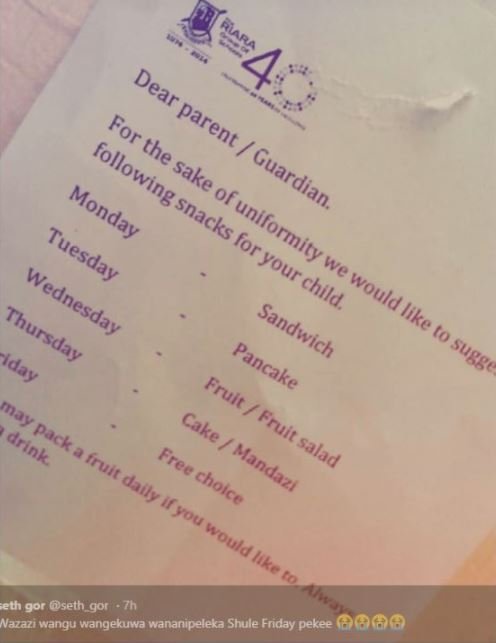 THE
RIARA
Group Of
Schools
1974 - 2014
40
Dear parent / Guardian.
For the sake of uniformity we would like to sugge
following snacks for your child.
Monday - Sandwich
Tuesday - Pancake
Wednesday - Fruit / Fruit salad
Thursday - Cake / Mandazi
riday - Free choice
may pack a fruit daily if you would like to. Always
a drink.
seth gor @seth_gor · 7h
Wazazi wangu wangekuwa wananipeleka Shule Friday pekee 😭😭😭😭